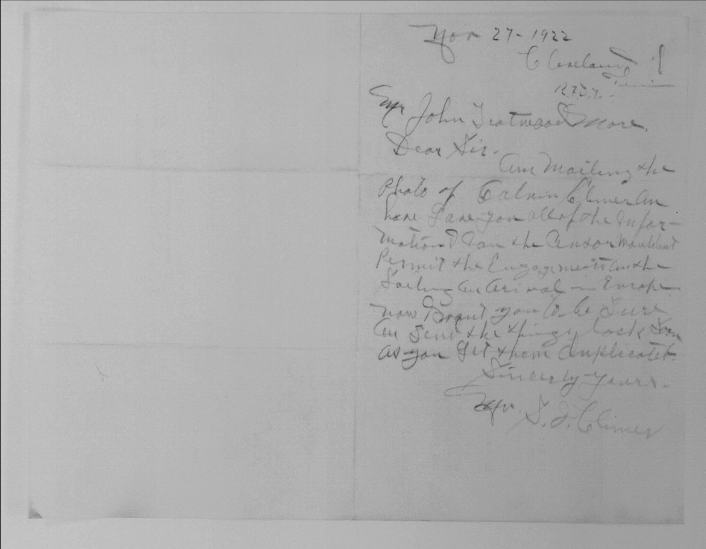 Nov 27 - 1922
Cleveland
Tenn
R.F.D.
Mr John Trotwood Moore.
Dear Sir.
Am Mailing the
Photo of Calvin Climer An
have Gave you all of the Infor-
mation I can the Censor wouldent
Permit the Engagements an the
Sailing an Arival in Europe
now I want you to be Sure
an Send the things back Soon
as you Get them duplicated.
Sincerly yours.
Mr. S. J. Climer